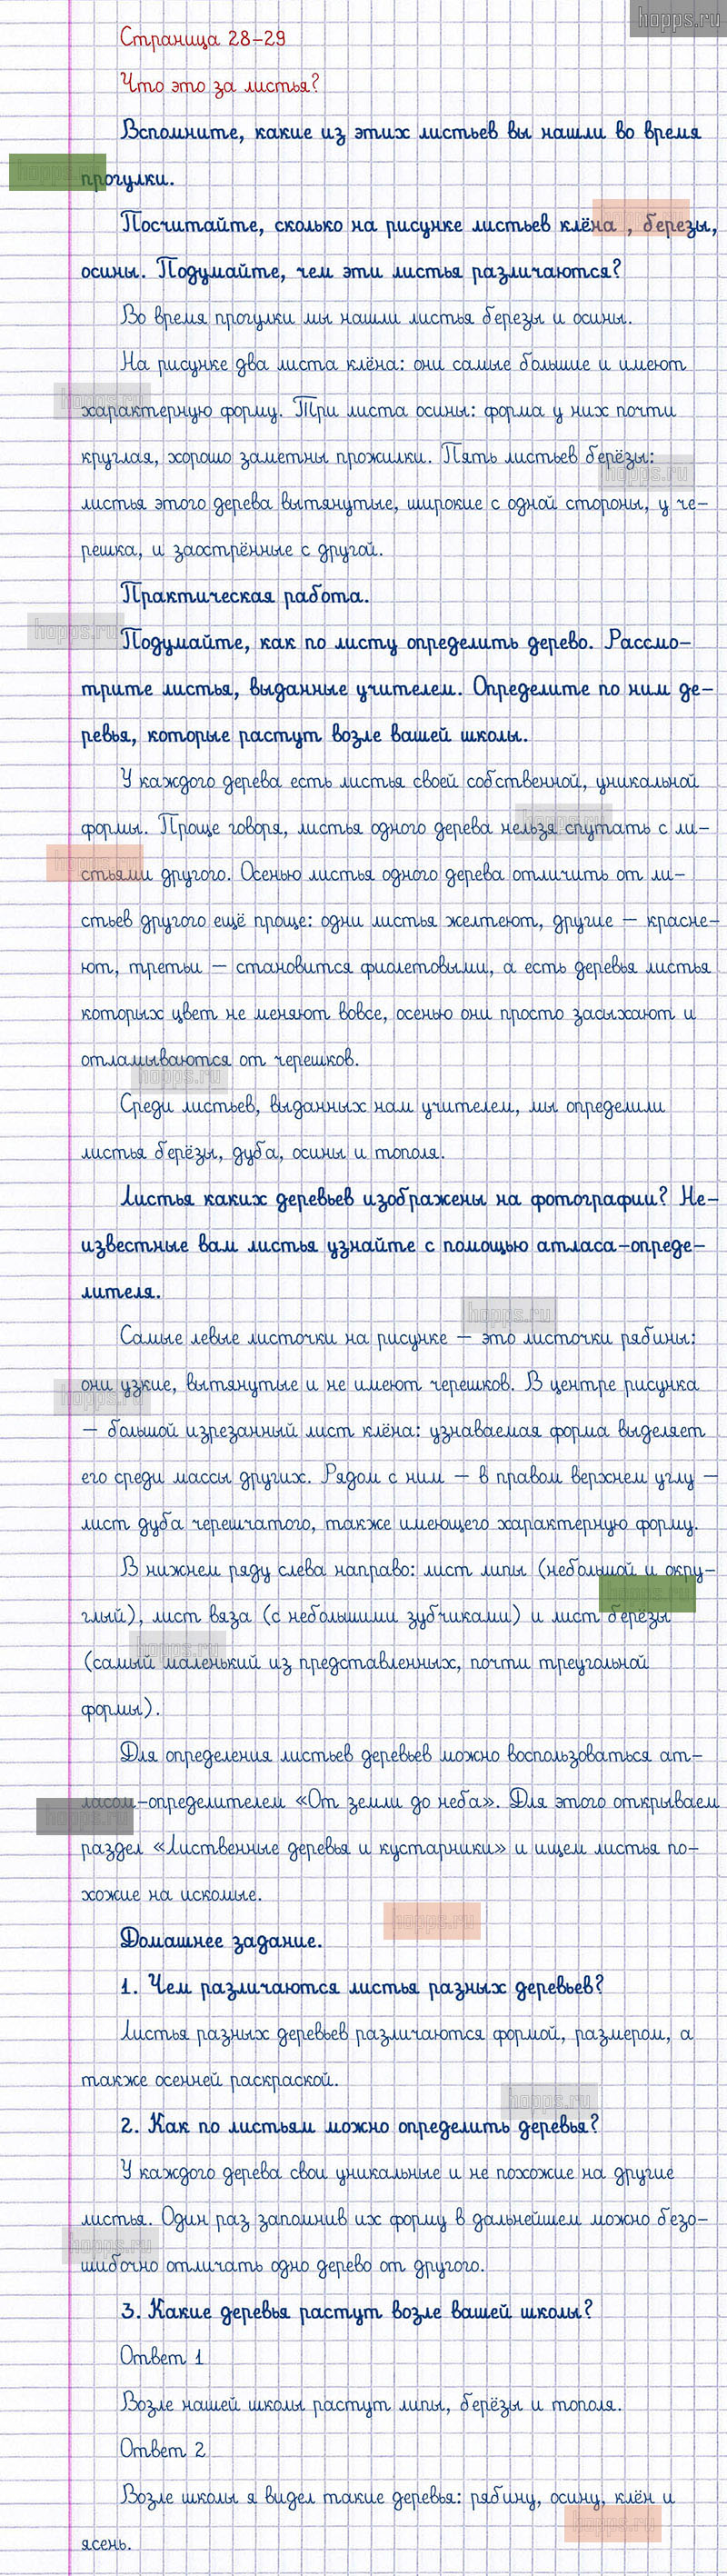 hopps.ru
Страница 28-29
Что это за листья?
Вспомните, какие из этих листьев вы нашли во время
прогулки.
Посчитайте, сколько на рисунке листьев клёна , березы,
осины. Подумайте, чем эти листья различаются?
Во время прогулки мы нашли листья березы и осины.
На рисунке два листа клёна: они самые большие и имеют
характерную форму. Три листа осины: форма у них почти
круглая, хорошо заметны прожилки. Пять листьев берёзы:
листья этого дерева вытянутые, широкие с одной стороны, у че-
решка, и заострённые с другой.
Практическая работа.
Подумайте, как по листу определить дерево. Рассмо-
трите листья, выданные учителем. Определите по ним де-
ревья, которые растут возле вашей школы.
У каждого дерева есть листья своей собственной, уникальной
формы. Проще говоря, листья одного дерева нельзя спутать с ли-
стьями другого. Осенью листья одного дерева отличить от ли-
стьев другого ещё проще: одни листья желтеют, другие – красне-
ют, третьи – становится фиолетовыми, а есть деревья листья
которых цвет не меняют вовсе, осенью они просто засыхают и
отламываются от черешков.
Среди листьев, выданных нам учителем, мы определили
листья берёзы, дуба, осины и тополя.
Листья каких деревьев изображены на фотографии? Не-
известные вам листья узнайте с помощью атласа-опреде-
лителя.
Самые левые листочки на рисунке – это листочки рябины:
они узкие, вытянутые и не имеют черешков. В центре рисунка
– большой изрезанный лист клёна: узнаваемая форма выделяет
его среди массы других. Рядом с ним – в правом верхнем углу –
лист дуба черешчатого, также имеющего характерную форму.
В нижнем ряду слева направо: лист липы (небольшой и окру-
глый), лист вяза (с небольшими зубчиками) и лист берёзы
(самый маленький из представленных, почти треугольной
формы).
Для определения листьев деревьев можно воспользоваться ат-
ласом-определителем «От земли до неба». Для этого открываем
раздел «Лиственные деревья и кустарники» и ищем листья по-
хожие на искомые.
Домашнее задание.
1. Чем различаются листья разных деревьев?
Листья разных деревьев различаются формой, размером, а
также осенней раскраской.
2. Как по листьям можно определить деревья?
У каждого дерева свои уникальные и не похожие на другие
листья. Один раз запомнив их форму в дальнейшем можно безо-
шибочно отличать одно дерево от другого.
3. Какие деревья растут возле вашей школы?
Ответ 1
Возле нашей школы растут липы, берёзы и тополя.
Ответ 2
Возле школы я видел такие деревья: рябину, осину, клён и
ясень.